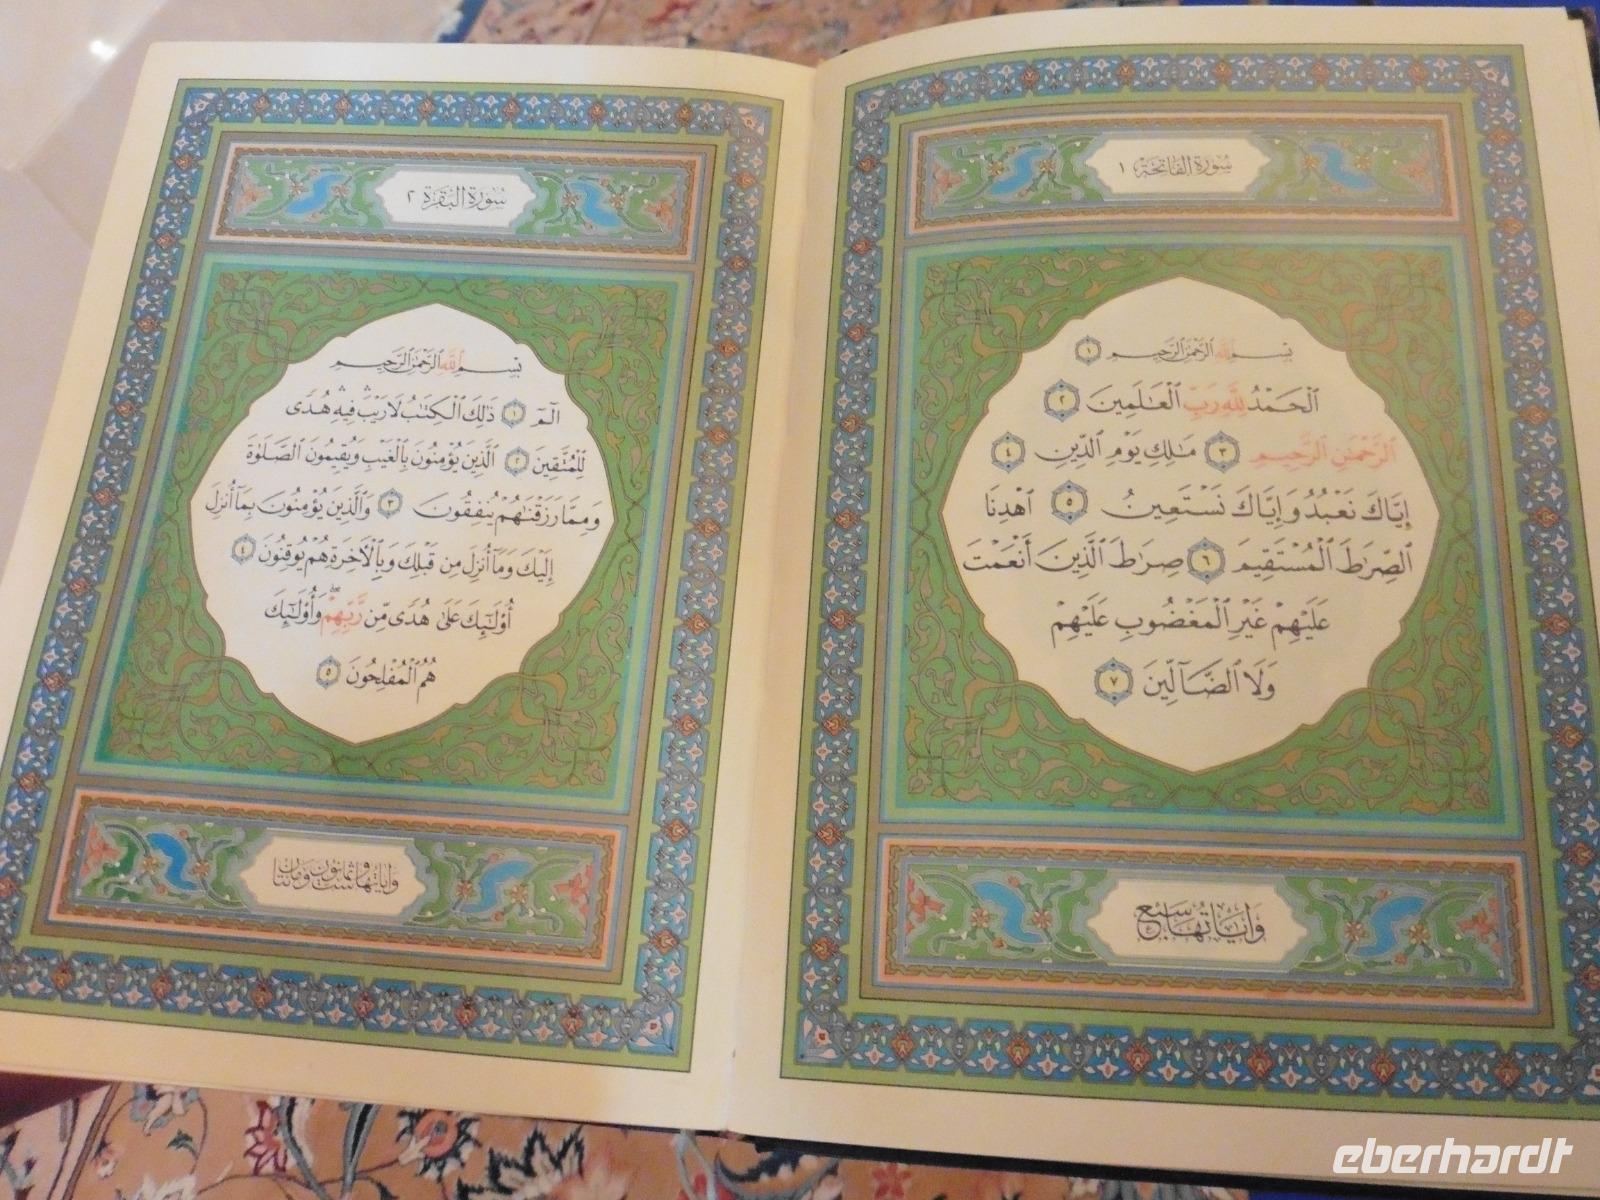 سُورَةُ الفَاتِحَة ١
بِسْمِ ٱللَّهِ ٱلرَّحْمَٰنِ ٱلرَّحِيمِ ١
ٱلْحَمْدُ لِلَّهِ رَبِّ ٱلْعَٰلَمِينَ ٢
ٱلرَّحْمَٰنِ ٱلرَّحِيمِ ٣ مَٰلِكِ يَوْمِ ٱلدِّينِ ٤
إِيَّاكَ نَعْبُدُ وَإِيَّاكَ نَسْتَعِينُ ٥ ٱهْدِنَا
ٱلصِّرَٰطَ ٱلْمُسْتَقِيمَ ٦ صِرَٰطَ ٱلَّذِينَ أَنْعَمْتَ
عَلَيْهِمْ غَيْرِ ٱلْمَغْضُوبِ عَلَيْهِمْ
وَلَا ٱلضَّآلِّينَ ٧
وَآيَاتُهَا سَبْعٌ
سُورَةُ البَقَرَة ٢
بِسْمِ ٱللَّهِ ٱلرَّحْمَٰنِ ٱلرَّحِيمِ
الٓمٓ ١ ذَٰلِكَ ٱلْكِتَٰبُ لَا رَيْبَ ۛ فِيهِ ۛ هُدًى
لِّلْمُتَّقِينَ ٢ ٱلَّذِينَ يُؤْمِنُونَ بِٱلْغَيْبِ وَيُقِيمُونَ ٱلصَّلَوٰةَ
وَمِمَّا رَزَقْنَٰهُمْ يُنفِقُونَ ٣ وَٱلَّذِينَ يُؤْمِنُونَ بِمَآ أُنزِلَ
إِلَيْكَ وَمَآ أُنزِلَ مِن قَبْلِكَ وَبِٱلْأَخِرَةِ هُمْ يُوقِنُونَ ٤
أُو۟لَٰٓئِكَ عَلَىٰ هُدًى مِّن رَّبِّهِمْ ۖ وَأُو۟لَٰٓئِكَ
هُمُ ٱلْمُفْلِحُونَ ٥
وَآيَاتُهَا سِتٌّ وَثَمَانُونَ وَمَائَتَانِ
eberhardt